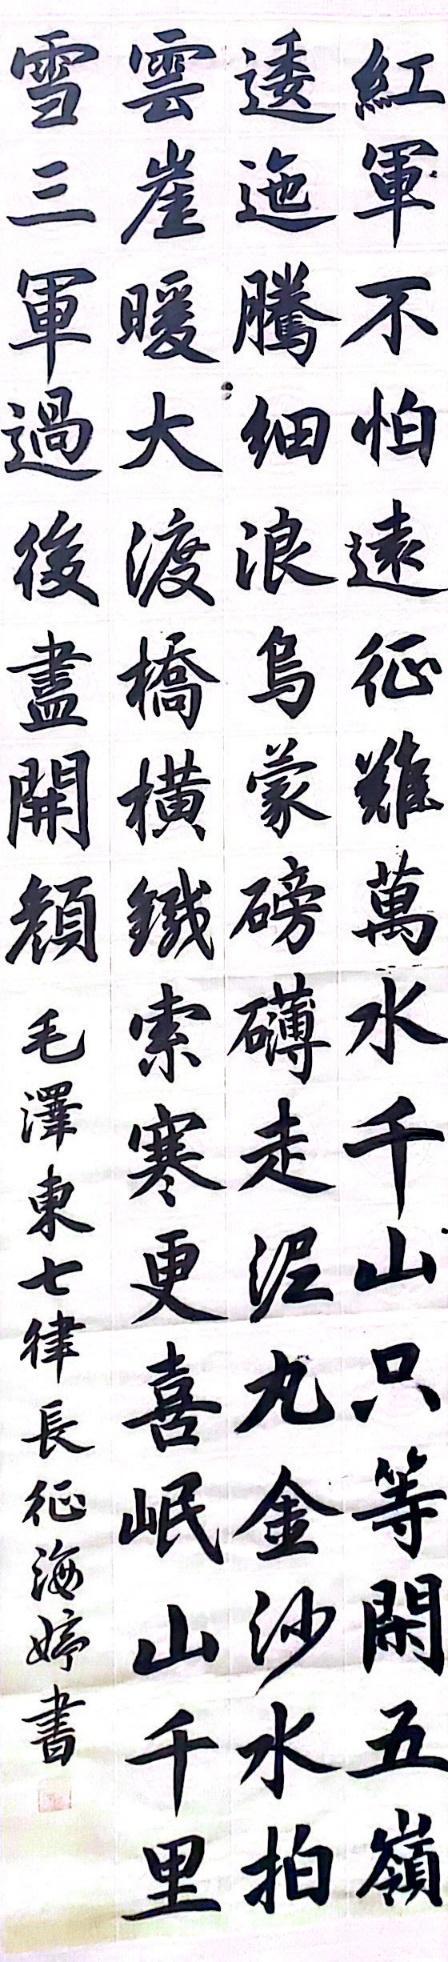 紅軍不怕遠征難萬水千山只等閑五嶺
逶迤騰細浪烏蒙磅礴走泥丸金沙水拍
雲崖暖大渡橋橫鐵索寒更喜岷山千里
雪三軍過後盡開顏
毛澤東七律長征海婷書